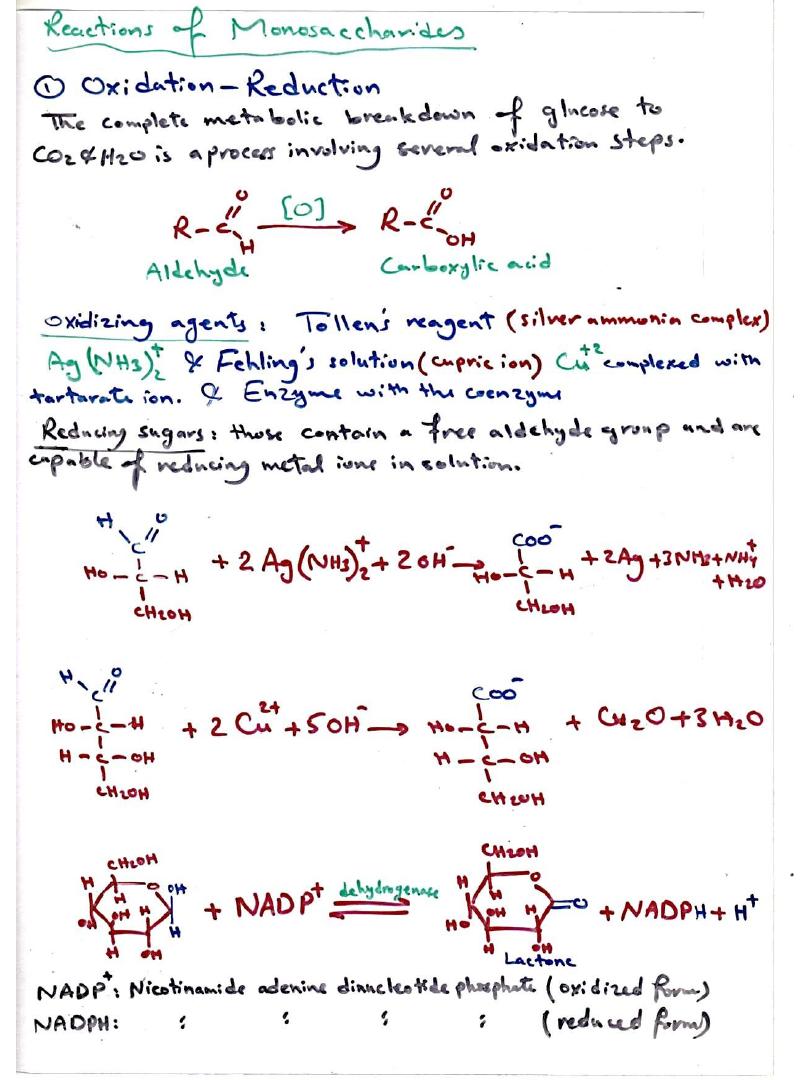 Reactions of Monosaccharides
① Oxidation-Reduction
The complete metabolic breakdown of glucose to
CO2 & H2O is a process involving several oxidation steps.
R-C=O H [O] → R-C=O OH
Aldehyde Carboxylic acid
Oxidizing agents: Tollen's reagent (silver ammonia complex)
Ag(NH3)2+ & Fehling's solution (cupric ion) Cu+2 complexed with
tartarate ion. & Enzyme with the coenzyme
Reducing sugars: those contain a free aldehyde group and are
capable of reducing metal ions in solution.
H O
C
HO-C-H + 2 Ag(NH3)2+ + 2OH- → COO- HO-C-H + 2Ag + 3NH3 + NH4+
+ H2O
CH2OH CH2OH
H O
C COO-
HO-C-H + 2 Cu2+ + 5OH- → HO-C-H + Cu2O + 3H2O
H-C-OH H-C-OH
CH2OH CH2OH
CH2OH CH2OH
H O OH H O
H H
OH H + NADP+ dehydrogenase OH H =O + NADPH + H+
OH H HO
H OH H OH
Lactone
NADP+: Nicotinamide adenine dinucleotide phosphate (oxidized form)
NADPH: : : : : (reduced form)